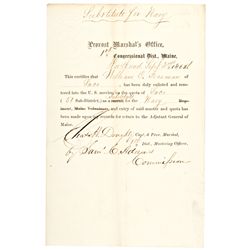 Substitute for Navy
Provost Marshal's Office,
1st Congressional Dist., Maine,
Portland Sept
This certifies that William E. Freeman of
Saco has been duly enlisted and mus-
tered into the U. S. service, to the quota of Saco
Sub-District, as a recruit for the Navy Reg-
iment, Maine Volunteers, and entry of said muster and quota has
been made upon records for return to the Adjutant General of
Maine.
Chas H. Doughty Capt. & Prov. Marshal,
Dist., Mustering Officer,
by Saml. C.
Commission